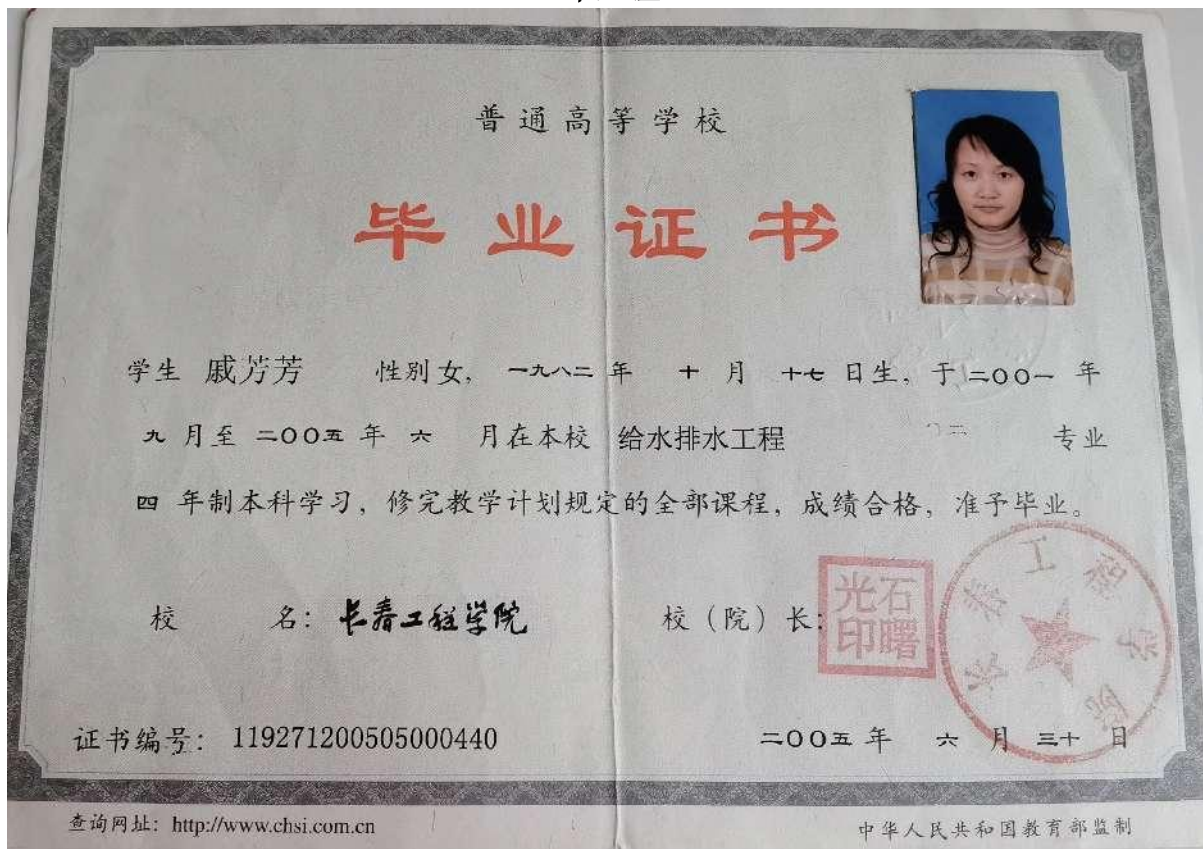 普通高等学校
毕业证书
学生 戚芳芳 性别 女， 一九八二 年 十 月 十七 日生，于 二〇〇一 年
九 月至 二〇〇五 年 六 月在本校 给水排水工程 专业
四 年制本科学习，修完教学计划规定的全部课程，成绩合格，准予毕业。
校 名：长春工程学院 校（院）长：
石曙光印
长春工程学院
证书编号：119271200505000440 二〇〇五 年 六 月 三十 日
查询网址：http://www.chsi.com.cn 中华人民共和国教育部监制